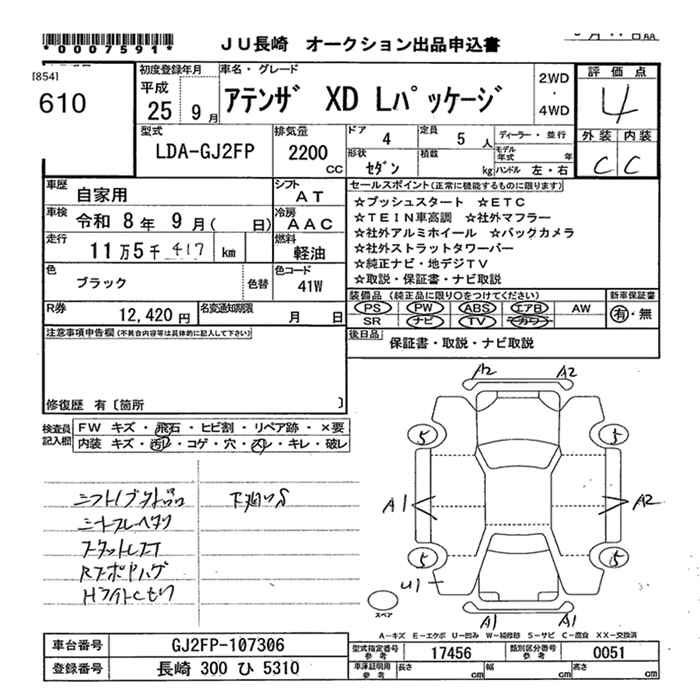 *0007591*
JU長崎 オークション出品申込書
[854]
610
初度登録年月
平成
25 9月
車名・グレード
アテンザ XD Lパッケージ
2WD
・
4WD
評価点
4
外装 内装
C C
型式
LDA-GJ2FP
排気量
2200
CC
ドア
4
定員
5 人
形状
セダン
積数
kg
ディーラー・並行
モデル年式 年
ハンドル 左・右
車歴
自家用
シフト
AT
車検
令和 8年 9月( 日)
冷房
AAC
走行
11万5千 417 km
燃料
軽油
色
ブラック
色替
色コード
41W
R券
12,420円
名変通知期限
月 日
セールスポイント(正常に機能するものに限ります)
☆プッシュスタート ☆ETC
☆TEIN車高調 ☆社外マフラー
☆社外アルミホイール ☆バックカメラ
☆社外ストラットタワーバー
☆純正ナビ・地デジTV
☆取説・保証書・ナビ取説
装備品 (純正品に限り○をつけてください)
PS PW ABS エアB AW
SR ナビ TV カワー
新車保証書
有・無
後日品
保証書・取説・ナビ取説
注意事項申告欄(不具合内容等は具体的に記入して下さい)
修復歴 有〔箇所 〕
検査員記入欄
FW キズ・飛石・ヒビ割・リペア跡・×要
内装 キズ・汚レ・コゲ・穴・スレ・キレ・破レ
A2 A2
5 5
A1 A2
5 5
U1
A1 A1
スペア
A−キズ E−エクボ U−凹み W−補修跡 S−サビ C−腐食 XX−交換済
車台番号
GJ2FP-107306
登録番号
長崎 300 ひ 5310
型式指定番号
参考
17456
類別区分番号
参考
0051
車庫証明用
参考
長さ cm
幅 cm
高さ cm